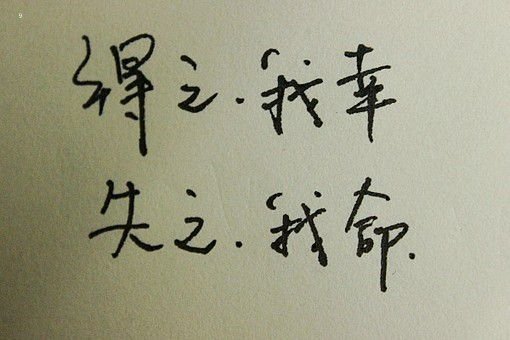 9
得之.我幸
失之.我命.